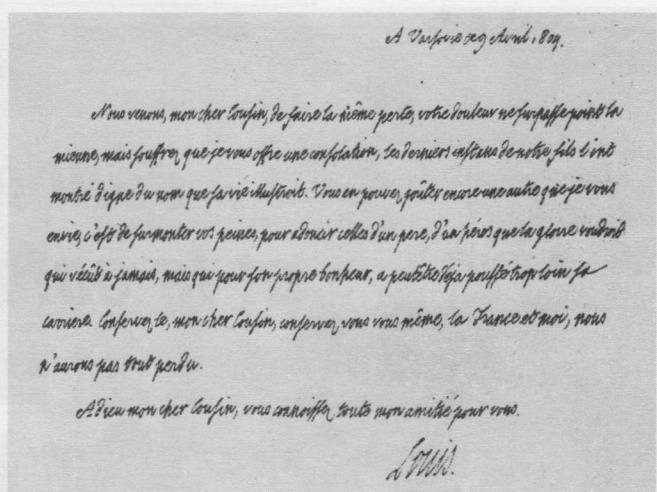 A Varsovie ce 9 Avril 1804.
Nous venons, mon cher Cousin, de faire la même perte, votre douleur ne surpasse point la
mienne, mais souffrez que je vous offre une consolation, les derniers instans de notre fils l'ont
montré digne du nom que sa vie illustroit. Vous en pouvez goûter encore une autre que je vous
envie, c'est de surmonter vos peines, pour adoucir celles d'un pere, d'un héros que la gloire voudroit
qui vécût à jamais, mais qui pour son propre bonheur, a peutêtre déja poussé trop loin sa
carriere. Conservez le, mon cher Cousin, conservez vous vous même, la France et moi, nous
n'aurons pas tout perdu.
Adieu mon cher Cousin, vous connoissez toute mon amitié pour vous.
Louis.